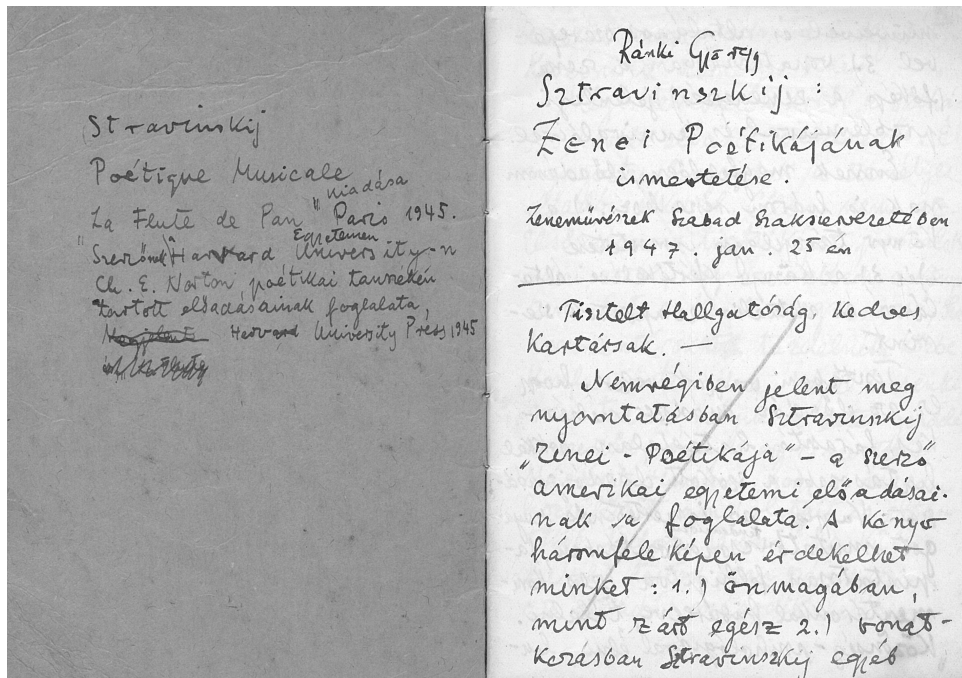 Stravinskij
Poétique Musicale
La Flute de Pan" kiadása Paris 1945.
"Szerzőnek Harvard Egyetemen University-n
Ch. E. Norton poétikai tanszékén
tartott előadásainak foglalata,
Harvard University Press 1945
Ránki György
Sztravinszkij:
Zenei Poétikájának
ismertetése.
Zeneművészek Szabad Szakszervezetében
1947. jan. 25 én
Tisztelt Hallgatóság, Kedves
Kartársak. —
Nemrégiben jelent meg
nyomtatásban Sztravinszkij
„Zenei - Poétikája" – a szerző
amerikai egyetemi előadásai-
nak a foglalata. A könyv
háromféle képen érdekelhet
minket: 1.) önmagában,
mint zárt egész 2.) vonat-
kozásban Sztravinszkij egyéb